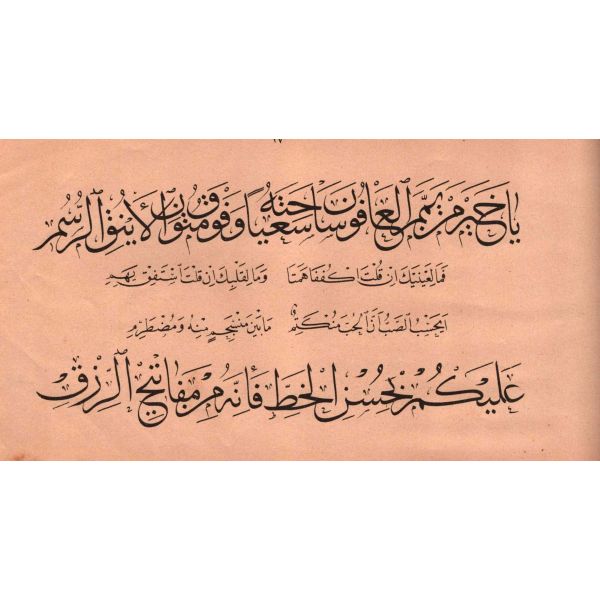 ١٧
يا خير من يمم العافون ساحته سعيا وفوق متون الأينق الرسم
فما لعينيك إن قلت اكففا همتا وما لقلبك إن قلت استفق يهم
أيحسب الصب أن الحب منكتم ما بين منسجم منه ومضطرم
عليكم بحسن الخط فإنه من مفاتيح الرزق